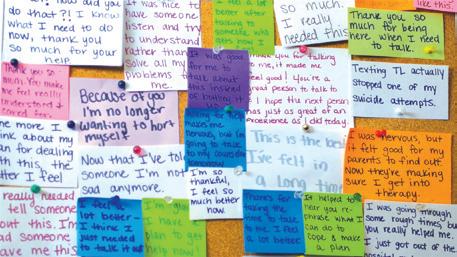 do that?!! I know
what I need to do
now, thank you
so much for your
help.
It was nice to
have someone
listen and try
to understand
rather than
solve all my
problems
me.
I feel a lot
better after
talking to
someone who
gets how I
so much.
I really
needed this.
Thank you so
much for being
here when I need
to talk.
like this.
Thank you so
much. You make
me feel really
understood &
cared for.
Because of you
I'm no longer
wanting to hurt
myself.
It was good
for me to
talk about
this instead
of
you for talking
to me, it made me
feel good! You're a
great person to talk to
I hope the next person
has just as great of an
experience as I did today.
Texting TL actually
stopped one of my
suicide attempts.
the more I
think about my
plan for dealing
with this, the
better I feel
Now that I've told
someone I'm not
sad anymore.
makes
me nervous, but I'm
going to talk
to my counselor
tomorrow
This is the best
I've felt in
a long time
I was nervous, but
it felt good for my
parents to find out.
Now they're making
sure I get into
therapy.
I'm so
thankful,
I feel so
much better
now.
really needed
tell someone
out this. I'm
ad someone
ave me this
I feel a
lot better-
I think I
just needed
to talk it out
I'm
I have a
plan to get
help now!
Thanks for
taking the
time to talk
to me. I feel
a lot better
It helped to
hear you re-
phrase what I
can do to
cope & make
a plan
I was going through
some rough times, but
you really helped me.
I just got out of the